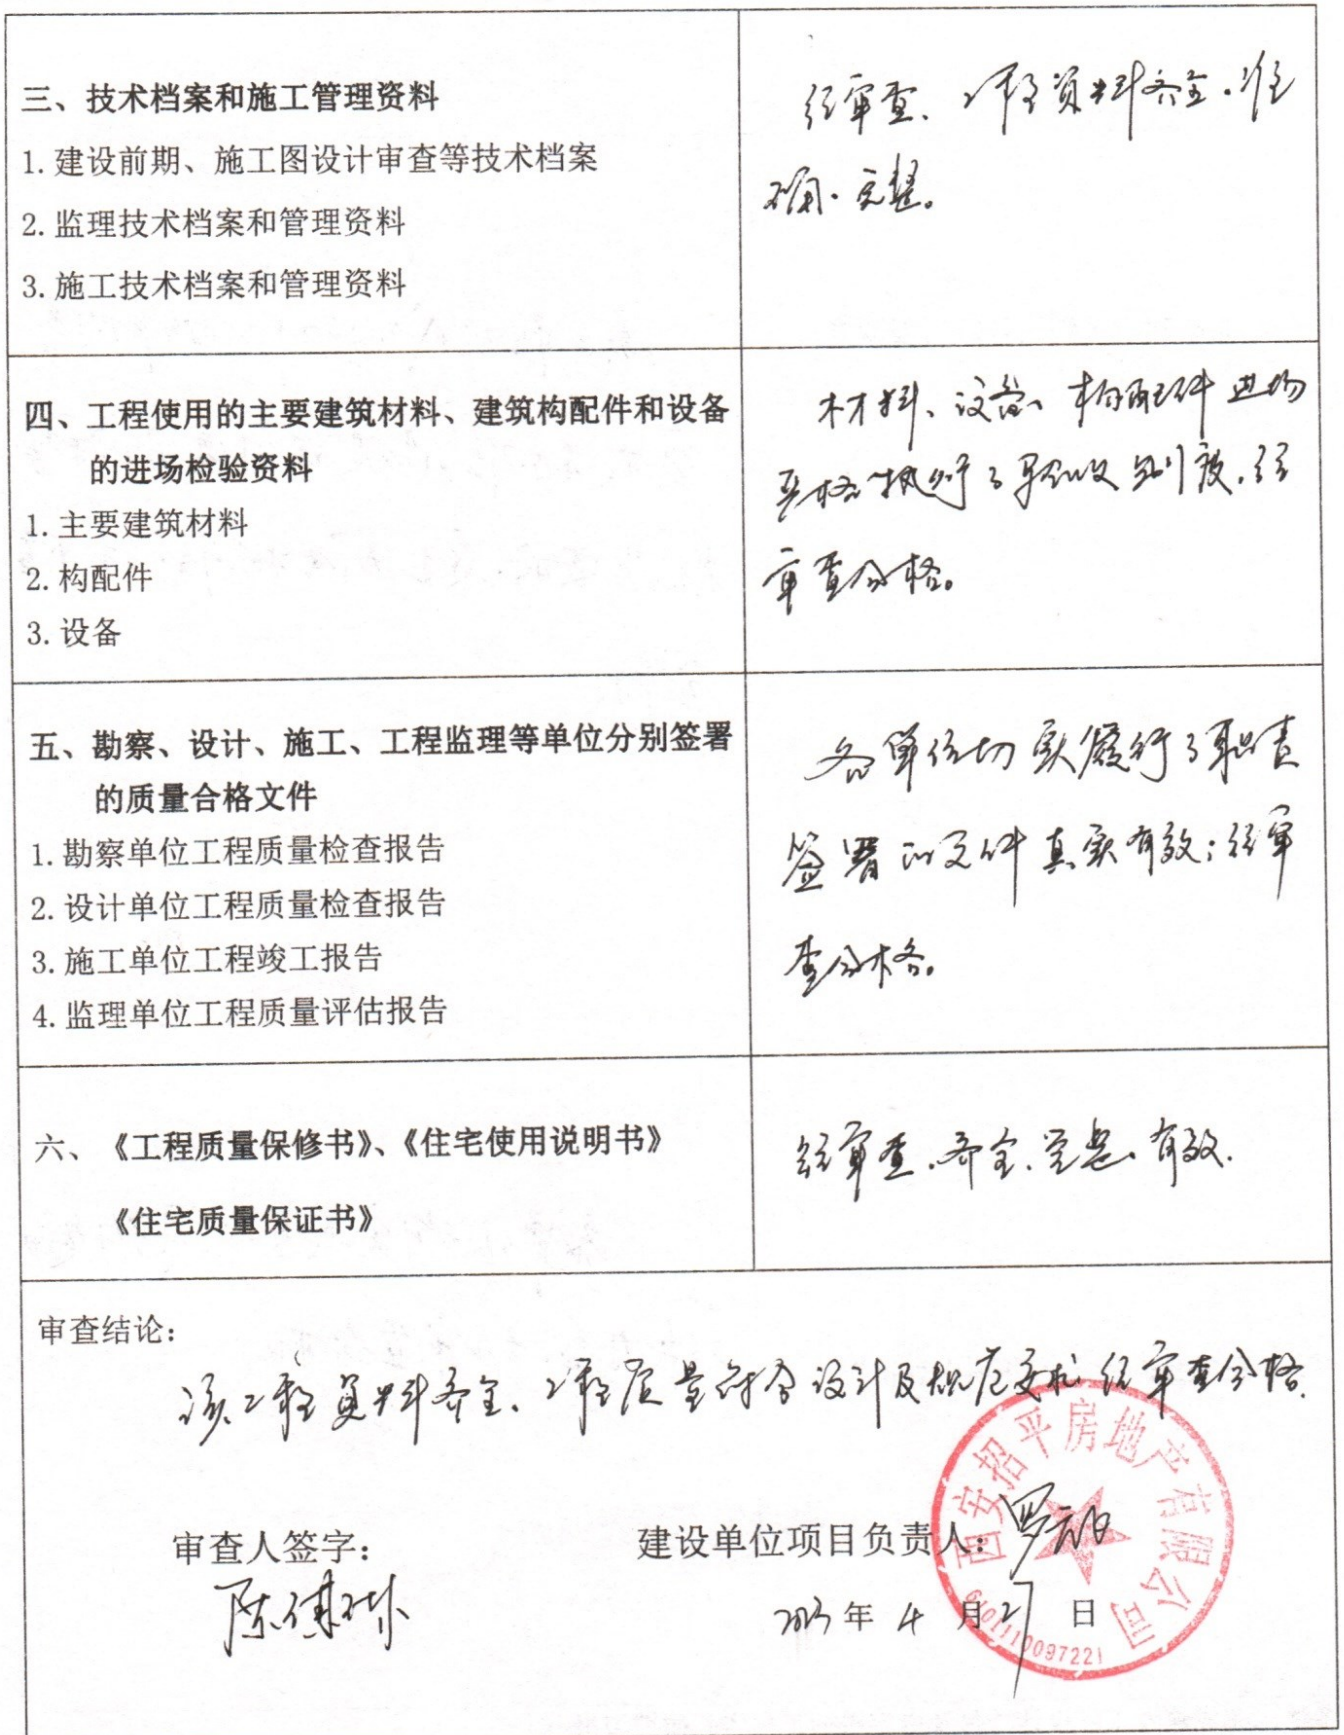 三、技术档案和施工管理资料
1.建设前期、施工图设计审查等技术档案
2.监理技术档案和管理资料
3.施工技术档案和管理资料
经审查、工程资料齐全、准
确、完整。
四、工程使用的主要建筑材料、建筑构配件和设备
的进场检验资料
1.主要建筑材料
2.构配件
3.设备
材料、设备、构配件进场
严格执行了验收制度,经
审查合格。
五、勘察、设计、施工、工程监理等单位分别签署
的质量合格文件
1.勘察单位工程质量检查报告
2.设计单位工程质量检查报告
3.施工单位工程竣工报告
4.监理单位工程质量评估报告
各单位切实履行了职责
签署的文件真实有效;经审
查合格。
六、《工程质量保修书》、《住宅使用说明书》
《住宅质量保证书》
经审查、齐全、完整、有效.
审查结论:
该工程资料齐全、工程质量符合设计及规范要求,经审查合格.
审查人签字:
陈
建设单位项目负责人:罗
年4月27日
西安招平房地产有限公司
6101110097221